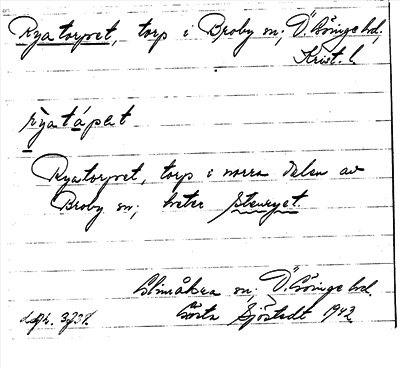 Ryatorpet, torp i Broby sn; Ö. Göinge hd,
Krist. l
rỳatápət
Ryatorpet, torp i norra delen av
Broby sn; heter Stenryet.
Glimåkra sn; Ö. Göinge hd.
Gösta Sjöstedt 1943.